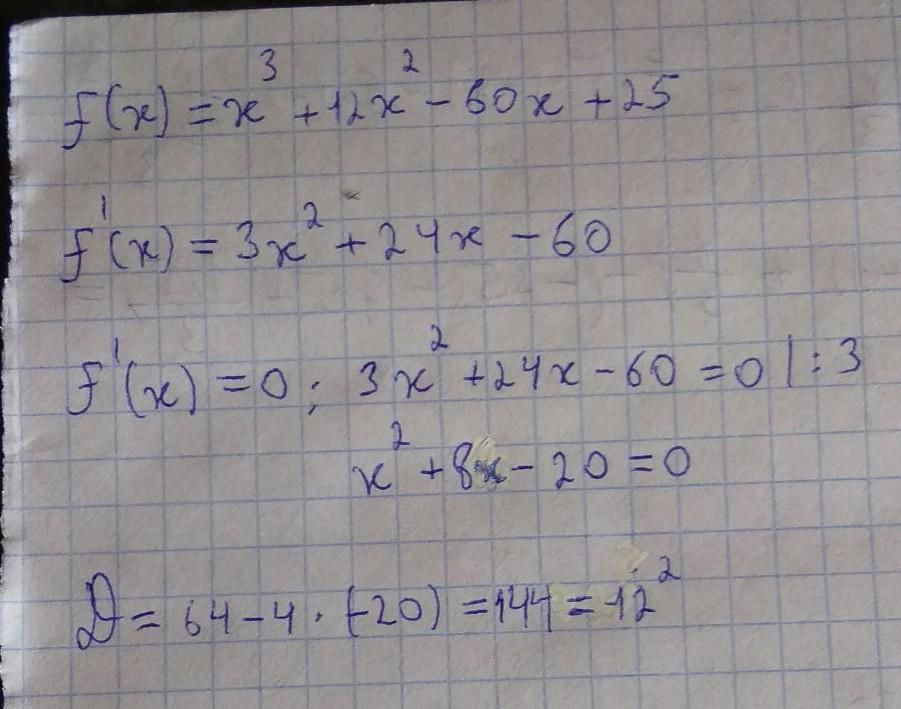 f(x) = x³ + 12x² - 60x + 25
f'(x) = 3x² + 24x - 60
f'(x) = 0; 3x² + 24x - 60 = 0 | : 3
x² + 8x - 20 = 0
D = 64 - 4 · (-20) = 144 = 12²